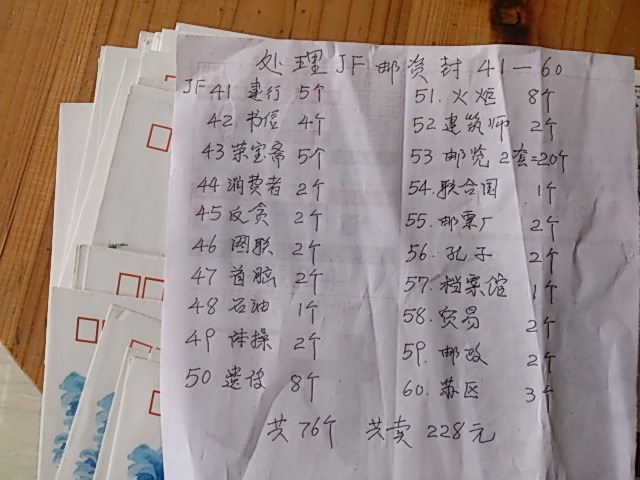 处理JF邮资封41—60
JF41 建行 5个
42 书信 4个
43 荣宝斋 5个
44 消费者 2个
45 反贪 2个
46 图联 2个
47 首脑 2个
48 石油 1个
49 体操 2个
50 遗传 8个
51. 火炬 8个
52 建筑师 2个
53 邮览 2套=20个
54. 联合国 1个
55. 邮票厂 2个
56. 孔子 2个
57. 档案馆 1个
58. 贸易 2个
59. 邮政 2个
60. 苏区 3个
共76个 共卖228元